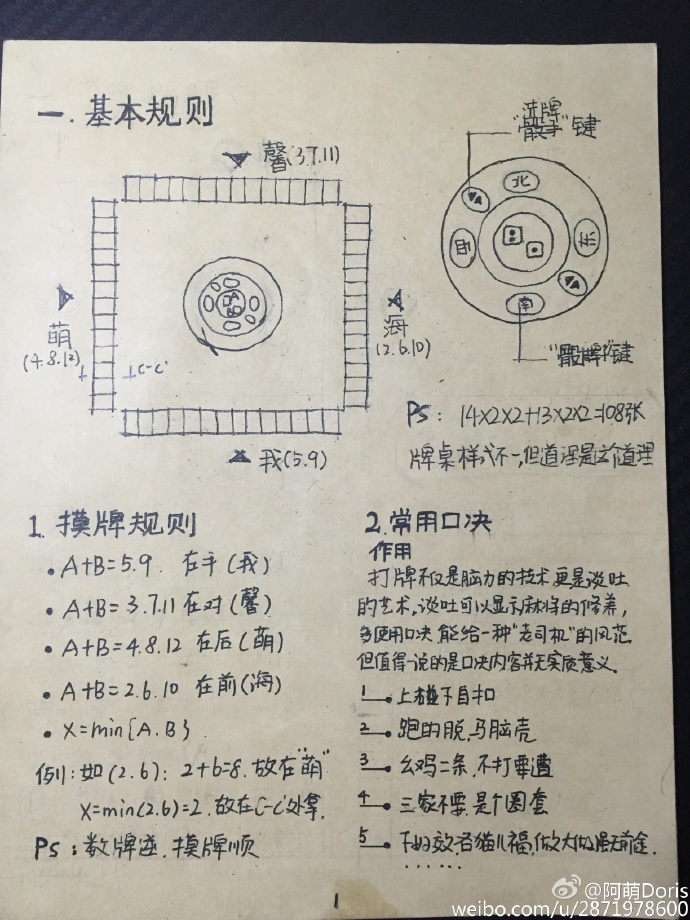 一.基本规则
馨(3.7.11)
萌
(4.8.12)
海
(2.6.10)
C-C'
我(5.9)
洗牌
"骰子"键
北
西
东
南
"骰牌"键
PS: 14×2×2+13×2×2=108张
牌桌样式不一,但道理是这个道理
1.摸牌规则
• A+B=5.9. 在手(我)
• A+B=3.7.11在对(馨)
• A+B=4.8.12 在后(萌)
• A+B=2.6.10 在前(海)
• X=min{A.B}
例1:如(2.6):2+6=8.放在"萌"
X=min(2.6)=2.放在C-C'处拿.
PS:数牌逆.摸牌顺
2.常用口决
作用
打牌不仅是脑力的技术更是谈吐
的艺术,谈吐可以显示麻将的修养,
多使用口决 能给一种"老司机"的风范
但值得一说的是口决内容并无实质意义.
1 上碰下自扣
2 跑的脱,马脑壳
3 幺鸡二条,不打要遭
4 三家不要.是个圈套
5 做大做强无前途.
......
1
@阿萌Doris
weibo.com/u/2871978600